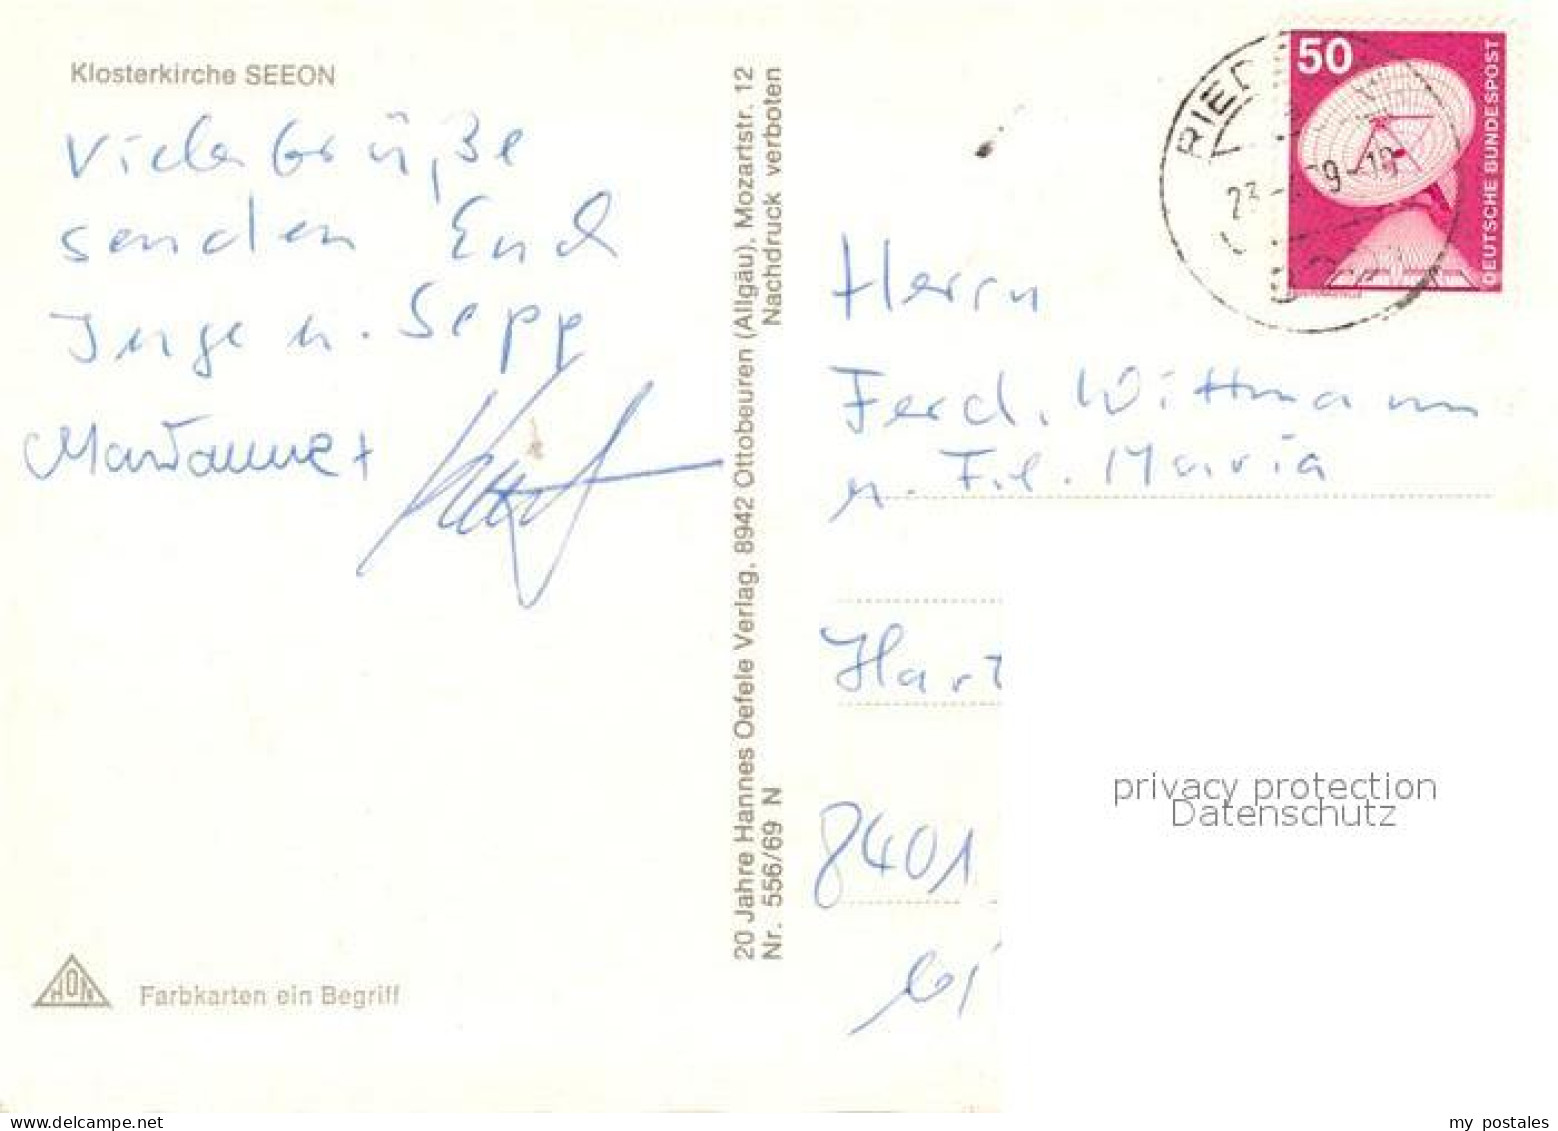 Klosterkirche SEEON
Viele Grüße
senden Euch
Inge u. Sepp
Marianne +
20 Jahre Hannes Oefele Verlag, 8942 Ottobeuren (Allgäu), Mozartstr. 12
Nr. 556/69 N
Nachdruck verboten
HON
Farbkarten ein Begriff
50
DEUTSCHE BUNDESPOST
RIED
Herrn
Ferd. Wittmann
u. Frl. Maria
Hart
8401
privacy protection
Datenschutz
delcampe.net
my_postales